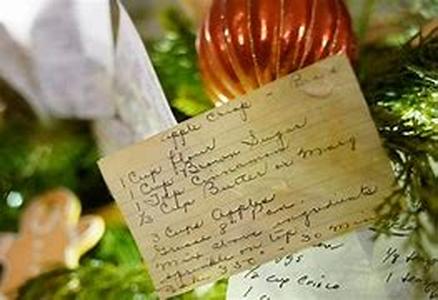 apple Crisp -
1 Cup flour
1 Cup Brown Sugar
1 Tsp Cinnamon
1/2 Cup Butter or Marg
3 Cups Apples
Grease 8" Pan.
Mix above ingredients
sprinkle on top
350° - 30 Min
1/2 cup Crisco
1/8 tea
1 tea